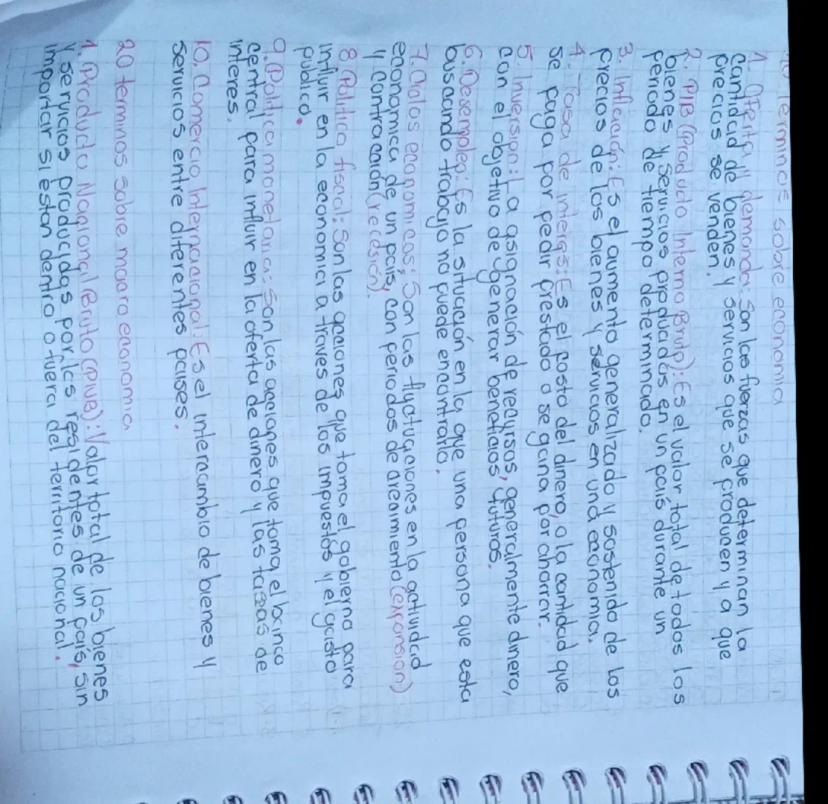 10 terminos sobre economia
1. Oferta y demanda: Son las fuerzas que determinan la
cantidad de bienes y servicios que se producen y a que
precios se venden.
2. PIB (Producto Interno Bruto): Es el valor total de todos los
bienes y servicios producidos en un país durante un
periodo de tiempo determinado.
3. Inflación: Es el aumento generalizado y sostenido de los
precios de los bienes y servicios en una economia.
4. Tasa de interes: Es el costo del dinero, o la cantidad que
se paga por pedir prestado o se gana por ahorrar.
5 Inversion: La asignación de recursos, generalmente dinero,
con el objetivo de generar beneficios futuros.
6. Desempleo: Es la situación en la que una persona que esta
buscando trabajo no puede encontrarlo.
7. Ciclos economicos: Son las fluctuaciones en la actividad
economica de un pais, con periodos de crecimiento (expansion)
y contracción (recesión).
8 Politica fiscal: Son las acciones que toma el gobierno para
influir en la economia a traves de los impuestos y el gasto
publico.
9. Politica monetaria: Son las acciones que toma el banco
central para influir en la oferta de dinero y las tasas de
interes.
10. Comercio Internacional: Es el intercambio de bienes y
servicios entre diferentes paises.
20 terminos sobre macro economia
1. Producto Nacional Bruto (PNB): Valor total de los bienes
y servicios producidos por los residentes de un país, sin
importar si estan dentro o fuera del territorio nacional.